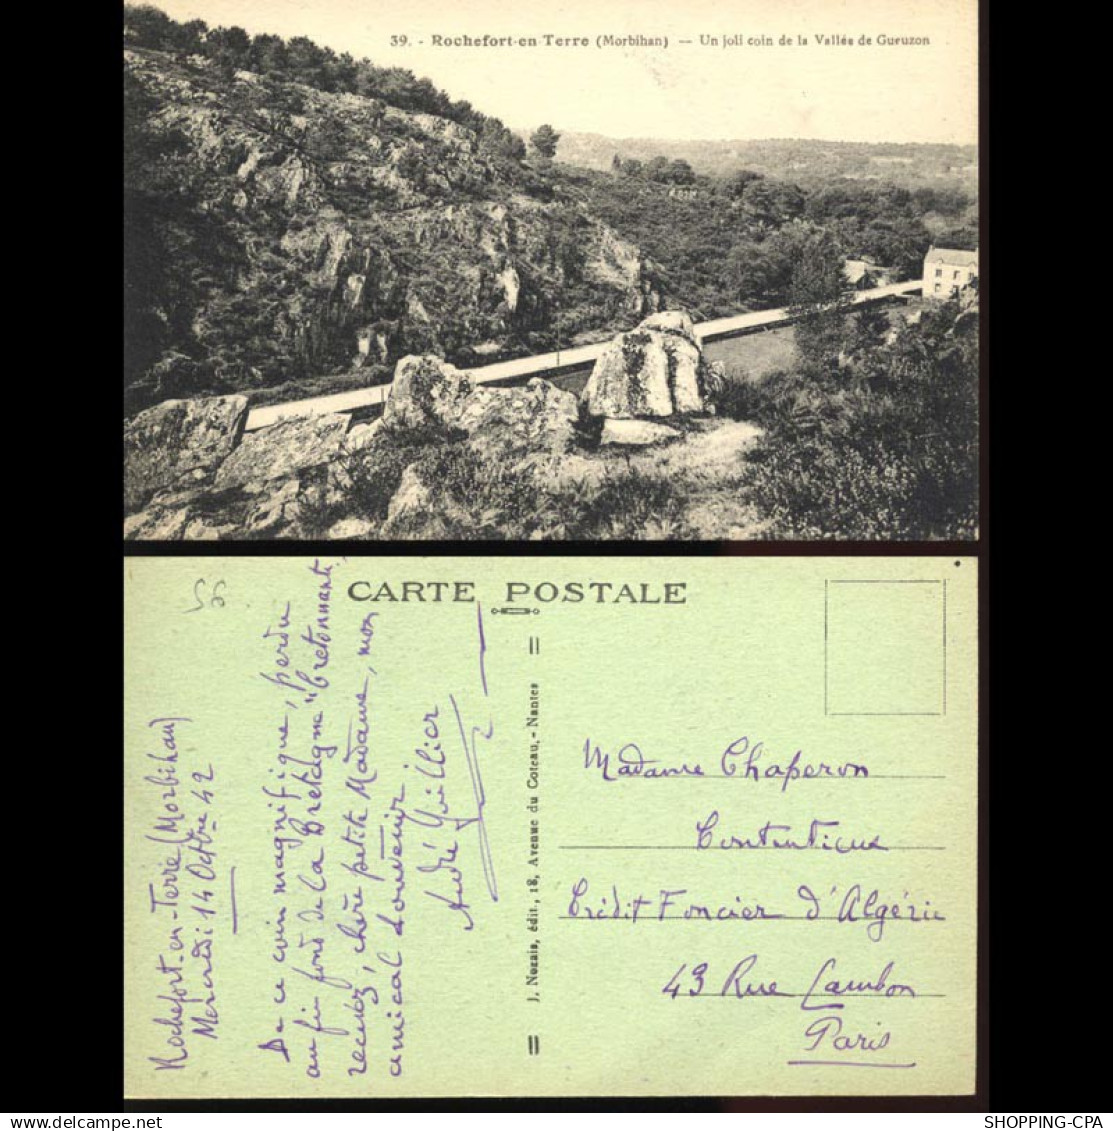 39. - Rochefort-en-Terre (Morbihan) — Un joli coin de la Vallée de Gueuzon
56
CARTE POSTALE
Rochefort-en-Terre (Morbihan)
Mercredi 14 Octbre 42
De ce coin magnifique, perdu
au fin fond de la Bretagne "bretonnante",
recevez, chère petite Madame, mon
amical souvenir
André Guillier
J. Nozais, édit., 18, Avenue du Coteau, - Nantes
Madame Chaperon
Contentieux
Crédit Foncier d'Algérie
43 Rue Cambon
Paris
SHOPPING-CPA